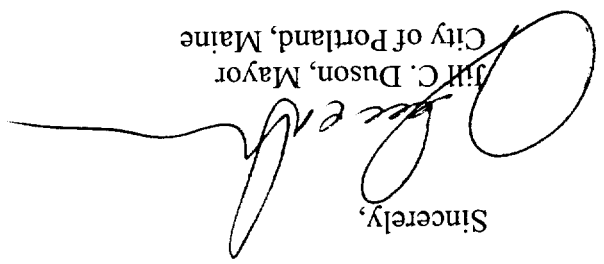 Sincerely,
Jill C. Duson, Mayor
City of Portland, Maine